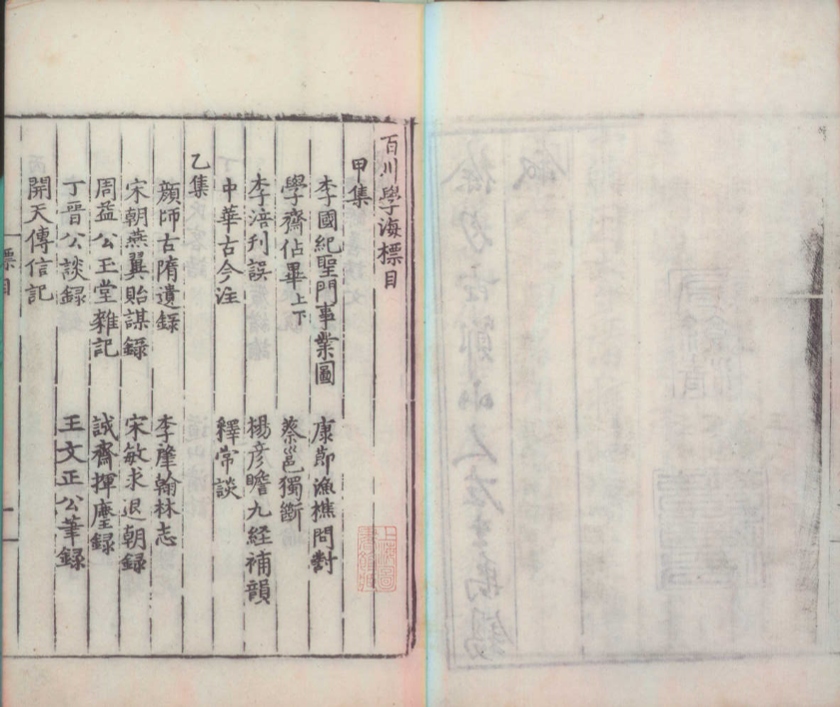 百川學海標目
甲集
李國紀聖門事業圖 康節漁樵問對
學齋佔畢上下 蔡邕獨斷
李涪刊誤 楊彦瞻九経補韻
中華古今注 釋常談
乙集
顔師古隋遺録 李肇翰林志
宋朝燕翼貽謀録 宋敏求退朝録
周益公玉堂雜記 誠齋揮麈録
丁晉公談録 王文正公筆録
開天傳信記
標目